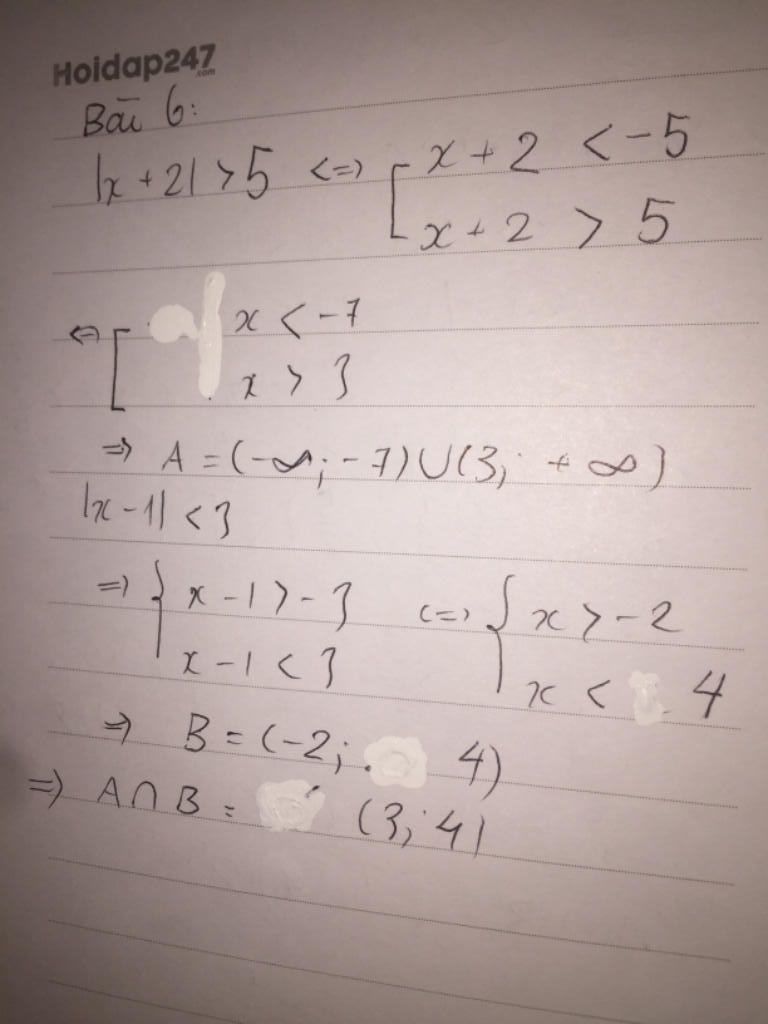 Hoidap247
.com
Bài 6:
|x + 2| > 5 <=> [ x + 2 < -5
x + 2 > 5
<=> [ x < -7
x > 3
=> A = (-∞; -7) ∪ (3; +∞)
|x - 1| < 3
=> { x - 1 > -3 <=> { x > -2
x - 1 < 3 x < 4
=> B = (-2; 4)
=> A ∩ B = (3; 4)